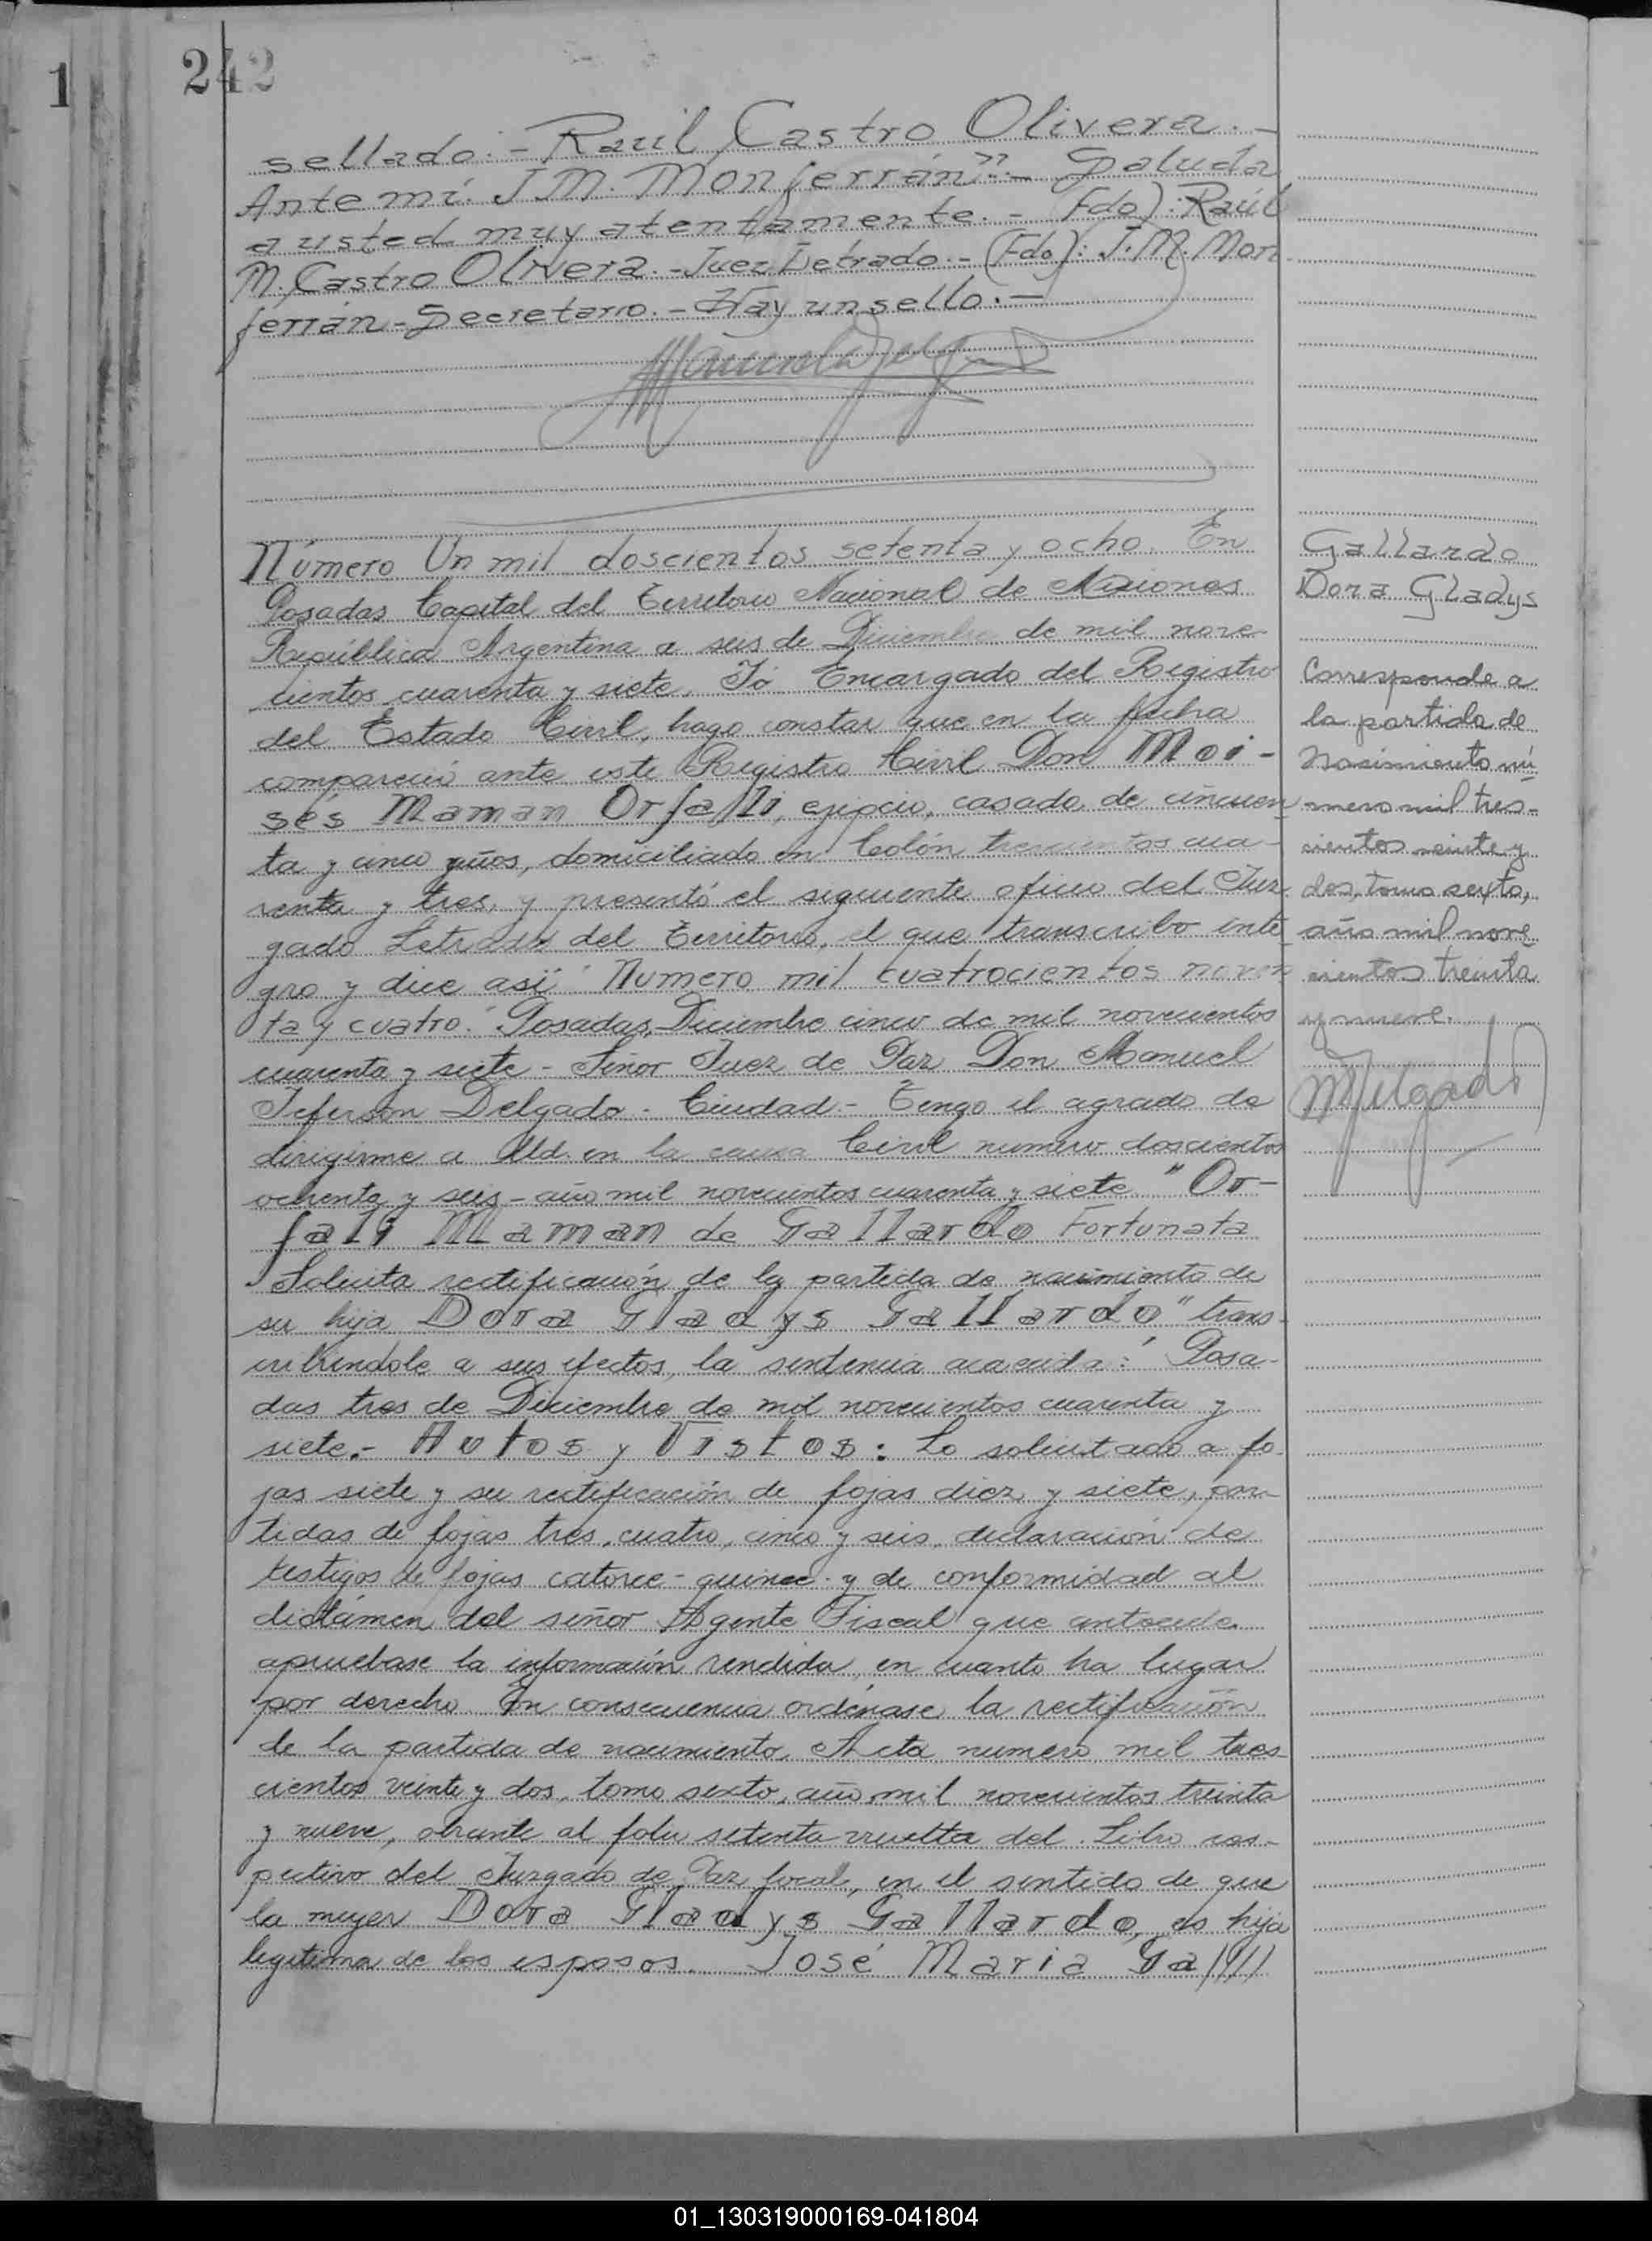 1
242
sellado:- Raúl Castro Olivera.-
Ante mí: J M. Monferrán".- Saluda
a usted muy atentamente.- (Fdo): Raúl
M. Castro Olivera.- Juez Letrado.- (Fdo): J. M. Mon
ferrán- Secretario.- Hay un sello.-
Número Un mil doscientos setenta y ocho. En
Posadas Capital del Territorio Nacional de Misiones
República Argentina a seis de Diciembre de mil nove-
cientos cuarenta y siete. Yo Encargado del Registro
del Estado Civil, hago constar que en la fecha
compareció ante este Registro Civil Don Moi-
sés Maman Orfalli, egipcio, casado de cincuen
ta y cinco años, domiciliado en Colón trescientos cua-
renta y tres, y presentó el siguiente oficio del Juz
gado Letrado del Territorio, el que transcribo inte
gro y dice así: Numero mil cuatrocientos noven
ta y cuatro. Posadas, Diciembre cinco de mil novecientos
cuarenta y siete - Señor Juez de Paz Don Manuel
Jeferson Delgado. Ciudad.- Tengo el agrado de
dirigirme a Ud. en la causa Civil numero doscientos
ochenta y seis - año mil novecientos cuarenta y siete "Or-
fali Maman de Gallardo Fortunata
Solicita rectificación de la partida de nacimiento de
su hija Dora Gladys Gallardo" trans-
cribiendole a sus efectos, la sentencia acaecida: Posa-
das tres de Diciembre de mil novecientos cuarenta y
siete.- Autos y Vistos: Lo solicitado a fo-
jas siete y su rectificación de fojas diez y siete, par-
tidas de fojas tres, cuatro, cinco y seis, declaración de
testigos de fojas catorce - quince - y de conformidad al
dictámen del señor Agente Fiscal que antecede.
apruebase la información rendida, en cuanto ha lugar
por derecho. En consecuencia ordénase la rectificación
de la partida de nacimiento, Acta numero mil tres-
cientos veinte y dos, tomo sexto, año mil novecientos treinta
y nueve, obrante al folio setenta vuelta del Libro res-
pectivo del Juzgado de Paz local, en el sentido de que
la mujer Dora Gladys Gallardo, es hija
legitima de los esposos. José Maria Ga////
Gallardo
Dora Gladys
Corresponde a
la partida de
Nacimiento nú
mero mil tres-
cientos veinte y
dos, tomo sexto,
año mil nove
cientos treinta
y nueve.
MJDelgado
01_130319000169-041804